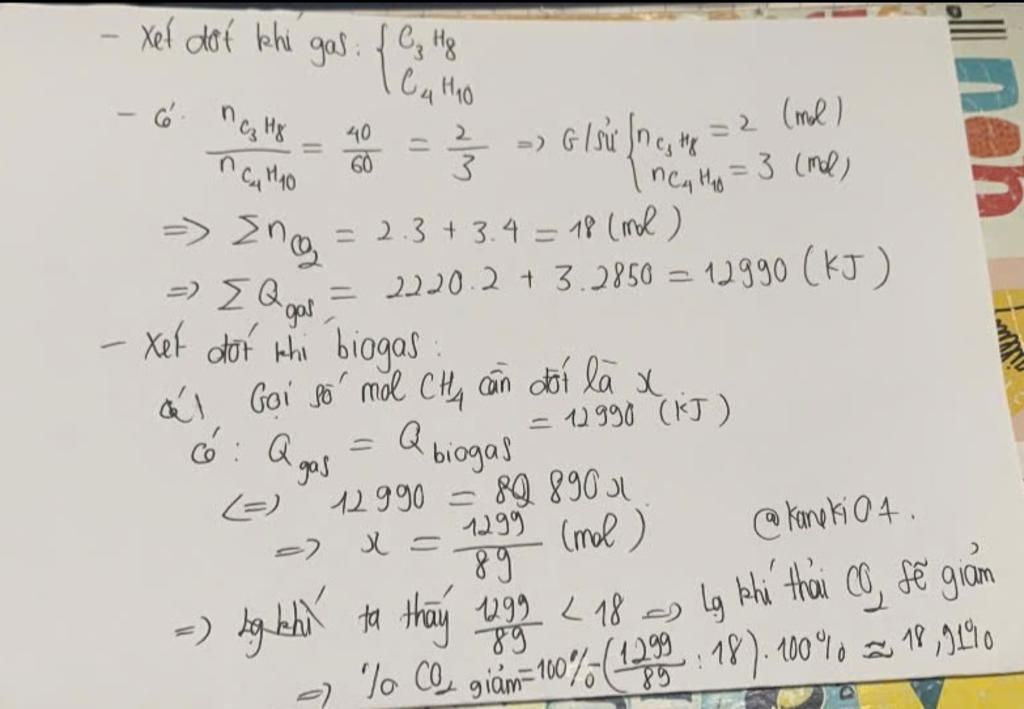 - Xét đốt khí gas: { C3H8
C4H10
- Có: nC3H8 / nC4H10 = 40/60 = 2/3 => G/sử { nC3H8 = 2 (mol)
nC4H10 = 3 (mol)
=> ΣnCO2 = 2.3 + 3.4 = 18 (mol)
=> ΣQgas = 2220.2 + 3.2850 = 12990 (KJ)
- Xét đốt khí biogas:
Gọi số mol CH4 cần đốt là x
Có: Qgas = Qbiogas = 12990 (KJ)
<=> 12990 = 890x
=> x = 1299/89 (mol)
@kaneki04.
=> ta thấy 1299/89 < 18 => lg khí thải CO2 sẽ giảm
=> % CO2 giảm = 100% - (1299/89 : 18).100% ≈ 18,91%
non